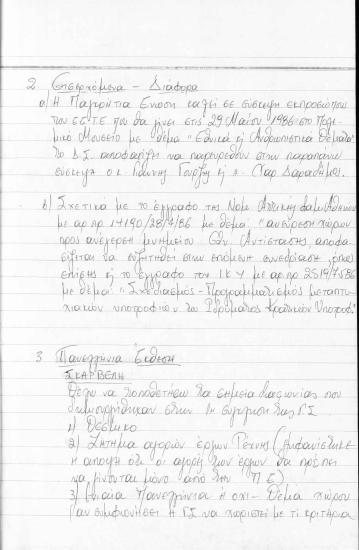 2 Εισερχόμενα - Διάφορα
α) Η Παγκρήτια Ένωση καλεί σε σύσκεψη εκπροσώπων
του ΕΕΤΕ που θα γίνει στις 29 Μαΐου 1986 στο Πολε-
μικό Μουσείο με θέμα "Εθνικά ή Ανθρωπιστικά Θέματα".
Το Δ.Σ. αποφασίζει να παρευρεθούν στην παραπάνω
σύσκεψη ο κ Γιάννης ή κ. Χαρ Δαραδήμος.
β) Σχετικά με το έγγραφο της Νομ Αττικής Διαμ Αθηνών
με αρ πρ 14190/28/4/86 με θέμα: "ανεύρεση χώρων
προς ανέγερση μνημείου Εθν Αντίστασης, αποφα-
σίζεται να συζητηθεί στην επόμενη συνεδρίαση όπως
επίσης ή το έγγραφο του ΙΚΥ με αρ πρ 2519/7-5-86
με θέμα: "Σχεδιασμός - Προγραμματισμός μεταπτυ-
χιακών υποτροφιών του Ιδρύματος Κρατικών Υποτροφ"
3 Πανελλήνια Έκθεση
ΣΚΑΡΒΕΛΗ
Θέλω να τοποθετήσω τα σημεία διαφωνίας που
δημιουργήθηκαν στην 1η εισήγηση της ΓΣ
1) Θεσμικό
2) Ζήτημα αγορών έργων Τέχνης (εμφανίστηκε
η άποψη ότι οι αγορές των έργων θα πρέπει
να γίνονται μόνο από την Π Ε)
3) Ενιαία Πανελλήνια ή όχι - Θέμα χώρου
(αν συμφωνήσει η ΓΣ να χωριστεί με τι κριτήρια